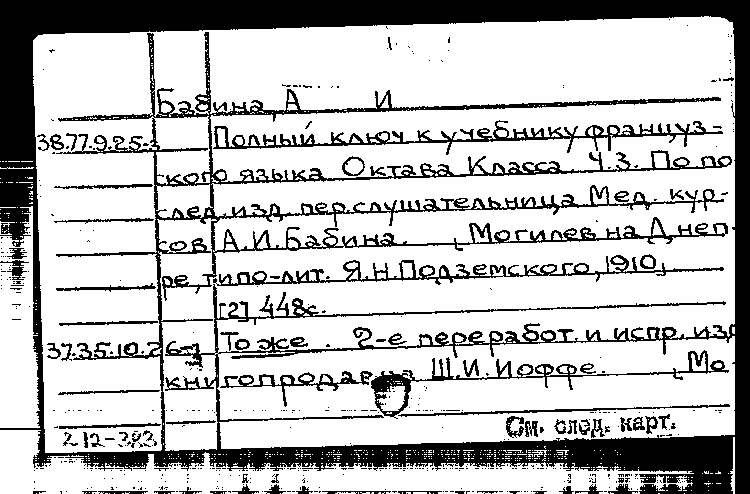 Бабина, А И
38.77.9.25-3 Полный ключ к учебнику француз-
ского языка Октава Класса. Ч.3. По по
след. изд. пер. слушательница Мед. кур-
сов А.И.Бабина. [Могилев на Днеп-
ре, типо-лит. Я.Н.Подземского, 1910]
[2], 448с.
37.35.10.26-1 То же. 2-е переработ. и испр. изд
книгопродавца Ш.И.Иоффе. [Мо-
212-383 См. след. карт.